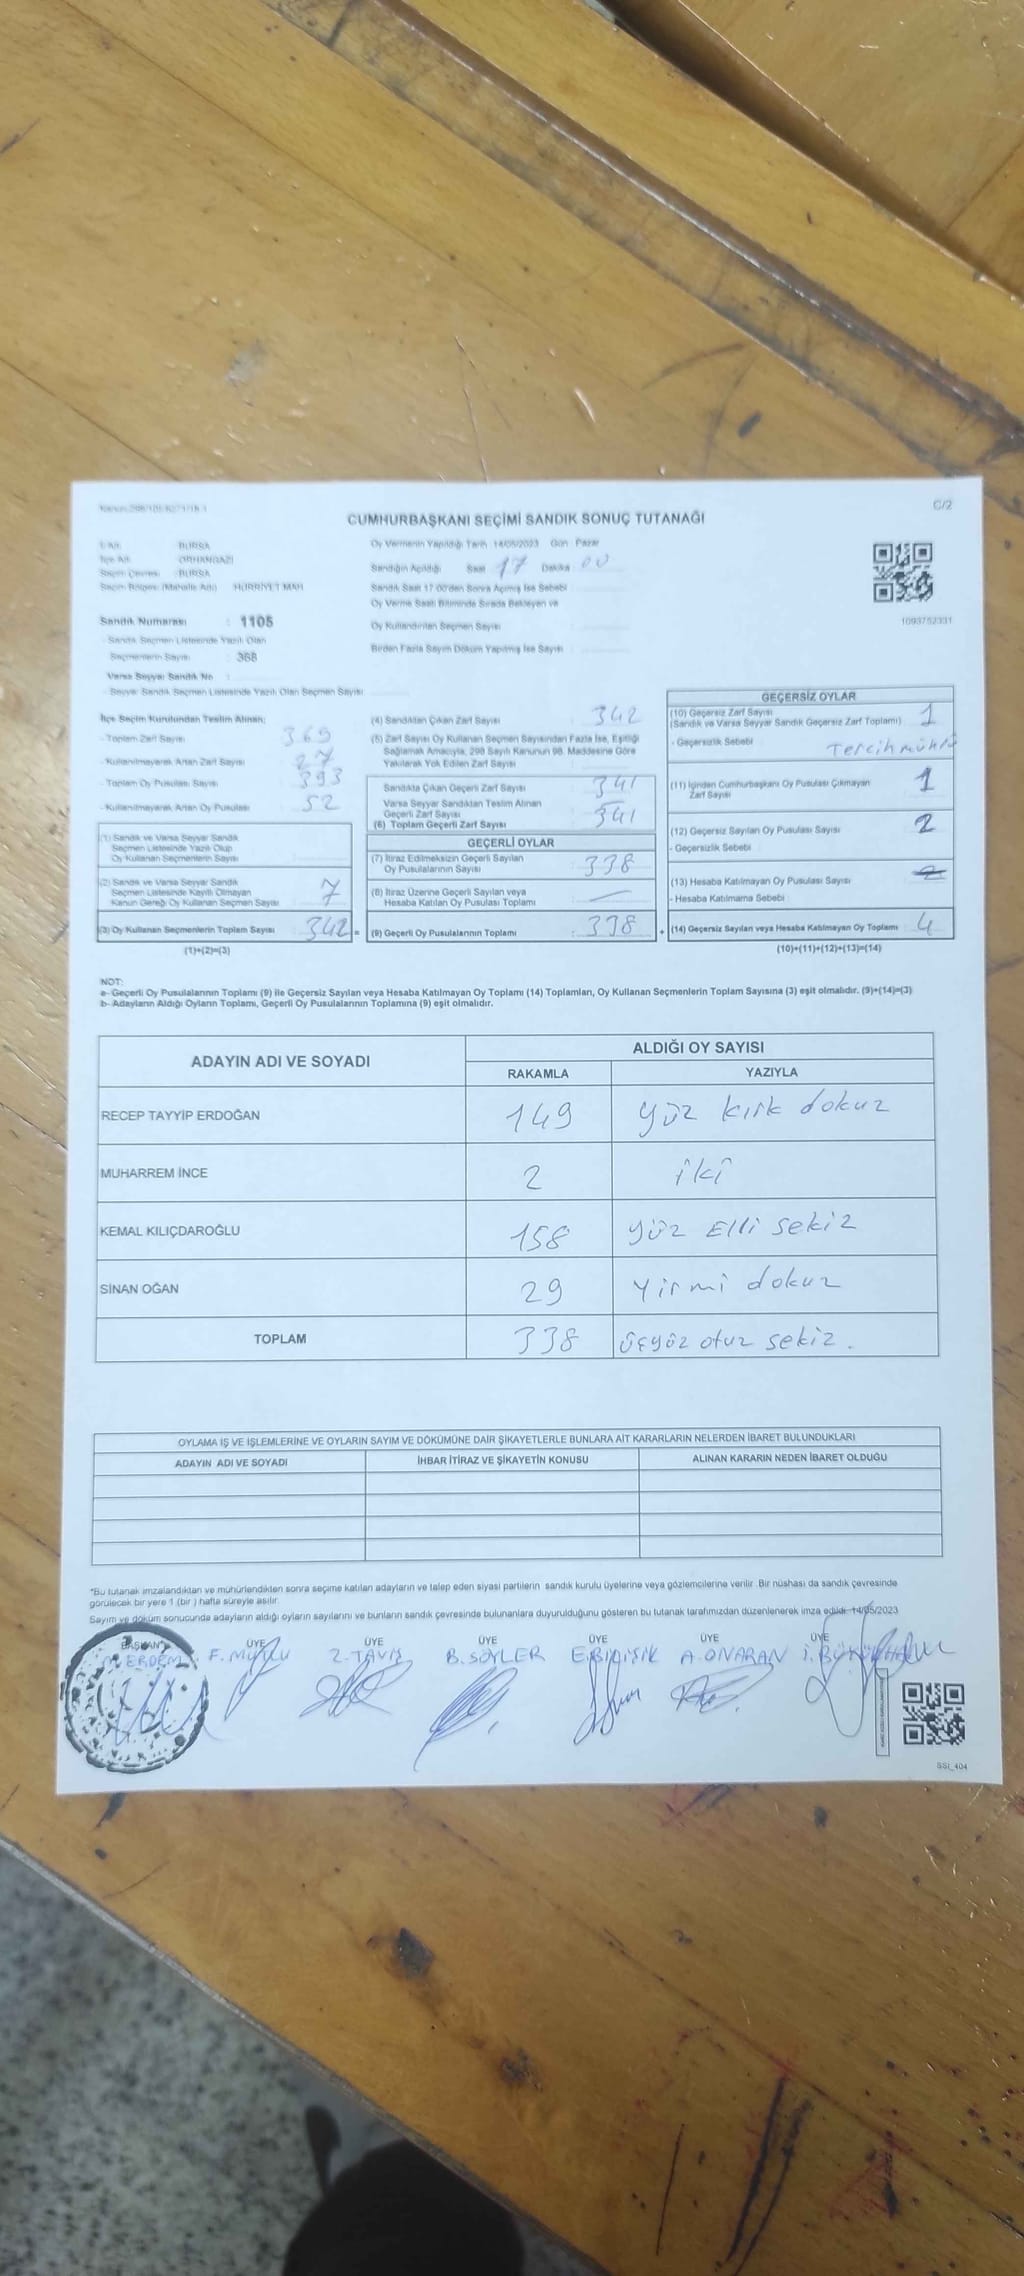 C/2
CUMHURBAŞKANI SEÇİMİ SANDIK SONUÇ TUTANAĞI
BURSA
ORHANGAZİ
Seçim Çevresi : BURSA
Seçim Bölgesi (Mahalle Adı) : HÜRRİYET MAH.
Sandık Numarası : 1105
Sandık Seçmen Listesinde Yazılı Olan
Seçmenlerin Sayısı : 368
Varsa Seyyar Sandık No :
- Seyyar Sandık Seçmen Listesinde Yazılı Olan Seçmen Sayısı
Oy Vermenin Yapıldığı Tarih 14/05/2023 Gün : Pazar
Sandığın Açıldığı : Saat 17 Dakika 00
Sandık Saat 17.00'den Sonra Açılmış İse Sebebi
Oy Verme Saati Bitiminde Sırada Bekleyen ve
Oy Kullandırılan Seçmen Sayısı :
Birden Fazla Sayım Döküm Yapılmış İse Sayısı :
1093752331
İlçe Seçim Kurulundan Teslim Alınan;
- Toplam Zarf Sayısı 369
- Kullanılmayarak Artan Zarf Sayısı 27
- Toplam Oy Pusulası Sayısı 393
- Kullanılmayarak Artan Oy Pusulası 52
(1) Sandık ve Varsa Seyyar Sandık
Seçmen Listesinde Yazılı Olup
Oy Kullanan Seçmenlerin Sayısı
(2) Sandık ve Varsa Seyyar Sandık
Seçmen Listesinde Kayıtlı Olmayan
Kanun Gereği Oy Kullanan Seçmen Sayısı 7
(3) Oy Kullanan Seçmenlerin Toplam Sayısı 342 =
(1)+(2)=(3)
(4) Sandıktan Çıkan Zarf Sayısı : 342
(5) Zarf Sayısı Oy Kullanan Seçmen Sayısından Fazla İse, Eşitliği
Sağlamak Amacıyla, 298 Sayılı Kanunun 98. Maddesine Göre
Yakılarak Yok Edilen Zarf Sayısı
Sandıkta Çıkan Geçerli Zarf Sayısı : 341
Varsa Seyyar Sandıktan Teslim Alınan
Geçerli Zarf Sayısı
(6) Toplam Geçerli Zarf Sayısı : 341
GEÇERLİ OYLAR
(7) İtiraz Edilmeksizin Geçerli Sayılan
Oy Pusulalarının Sayısı : 338
(8) İtiraz Üzerine Geçerli Sayılan veya
Hesaba Katılan Oy Pusulası Toplamı : —
(9) Geçerli Oy Pusulalarının Toplamı : 338 +
GEÇERSİZ OYLAR
(10) Geçersiz Zarf Sayısı
(Sandık ve Varsa Seyyar Sandık Geçersiz Zarf Toplamı) : 1
- Geçersizlik Sebebi : Tercih mührü
(11) İçinden Cumhurbaşkanı Oy Pusulası Çıkmayan
Zarf Sayısı : 1
(12) Geçersiz Sayılan Oy Pusulası Sayısı : 2
- Geçersizlik Sebebi :
(13) Hesaba Katılmayan Oy Pusulası Sayısı :
- Hesaba Katılmama Sebebi :
(14) Geçersiz Sayılan veya Hesaba Katılmayan Oy Toplamı : 4
(10)+(11)+(12)+(13)=(14)
NOT:
a- Geçerli Oy Pusulalarının Toplamı (9) ile Geçersiz Sayılan veya Hesaba Katılmayan Oy Toplamı (14) Toplamları, Oy Kullanan Seçmenlerin Toplam Sayısına (3) eşit olmalıdır. (9)+(14)=(3)
b- Adayların Aldığı Oyların Toplamı, Geçerli Oy Pusulalarının Toplamına (9) eşit olmalıdır.
ADAYIN ADI VE SOYADI
ALDIĞI OY SAYISI
RAKAMLA YAZIYLA
RECEP TAYYİP ERDOĞAN 149 yüz kırk dokuz
MUHARREM İNCE 2 iki
KEMAL KILIÇDAROĞLU 158 yüz Elli sekiz
SİNAN OĞAN 29 yirmi dokuz
TOPLAM 338 üçyüz otuz sekiz.
OYLAMA İŞ VE İŞLEMLERİNE VE OYLARIN SAYIM VE DÖKÜMÜNE DAİR ŞİKAYETLERLE BUNLARA AİT KARARLARIN NELERDEN İBARET BULUNDUKLARI
ADAYIN ADI VE SOYADI İHBAR İTİRAZ VE ŞİKAYETİN KONUSU ALINAN KARARIN NEDEN İBARET OLDUĞU
*Bu tutanak imzalandıktan ve mühürlendikten sonra seçime katılan adayların ve talep eden siyasi partilerin sandık kurulu üyelerine veya gözlemcilerine verilir. Bir nüshası da sandık çevresinde
görülecek bir yere 1 (bir ) hafta süreyle asılır.
Sayım ve döküm sonucunda adayların aldığı oyların sayılarını ve bunların sandık çevresinde bulunanlara duyurulduğunu gösteren bu tutanak tarafımızdan düzenlenerek imza edildi. 14/05/2023
BAŞKAN ÜYE ÜYE ÜYE ÜYE ÜYE ÜYE
ERDEM F. MUTLU Z. TAVİŞ B. SÖYLER A. ONARAN
SSİ_404